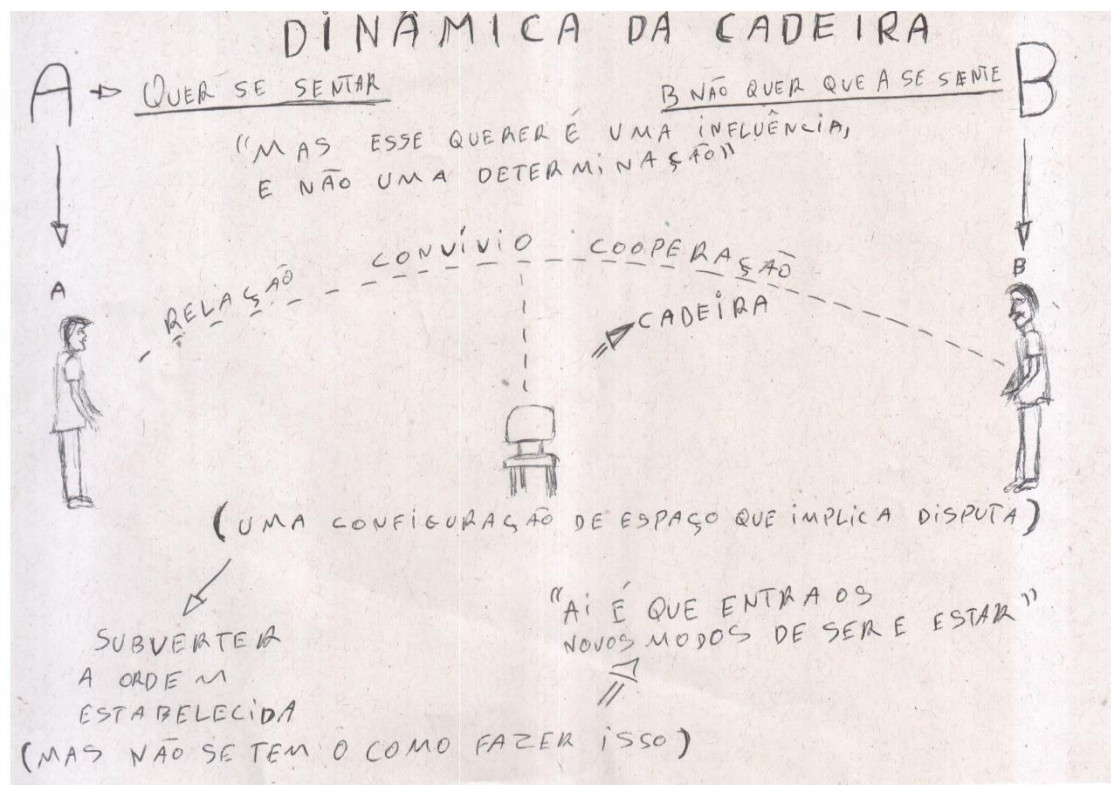 DINÂMICA DA CADEIRA
A QUER SE SENTAR
B NÃO QUER QUE A SE SENTE B
"MAS ESSE QUERER É UMA INFLUÊNCIA,
E NÃO UMA DETERMINAÇÃO"
RELAÇÃO CONVÍVIO COOPERAÇÃO
A
B
CADEIRA
(UMA CONFIGURAÇÃO DE ESPAÇO QUE IMPLICA DISPUTA)
SUBVERTER
A ORDEM
ESTABELECIDA
(MAS NÃO SE TEM O COMO FAZER ISSO)
"AI É QUE ENTRA OS
NOVOS MODOS DE SER E ESTAR"